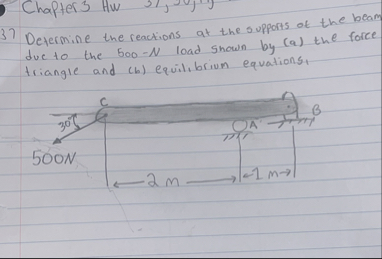 Chapter 3 HW 37,
37 Determine the reactions at the supports of the beam
due to the 500-N load shown by (a) the force
triangle and (b) equilibrium equations,
C
30°
B
A
500N
2 m
1 m